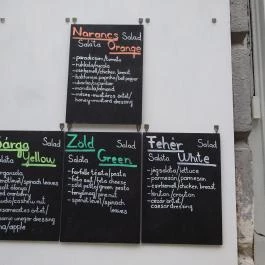 Narancs Salad
Saláta Orange
- paradicsom/tomato
- rukkola/rucola
- csirkemell/chicken breast
- kaliforniai paprika/bellpepper
- uborka/cucumber
- mandula/almond
- mézes-mustáros öntet/
honey-mustard dressing
Sárga Salad
Saláta Yellow
spenótlevél/spinach
leaves
/cashew nut
dressing
/apple
Zöld Salad
Saláta Green
- farfalle tészta/pasta
- feta sajt/feta cheese
- zöld pesto/green pesto
- fenyőmag/pine nut
- spenót levél/spinach
leaves
Fehér Salad
Saláta White
- jégsaláta/lettuce
- parmezán/parmesan
- csirkemell/chicken breast
- kruton/crouton
- cézár öntet/
caesar dressing